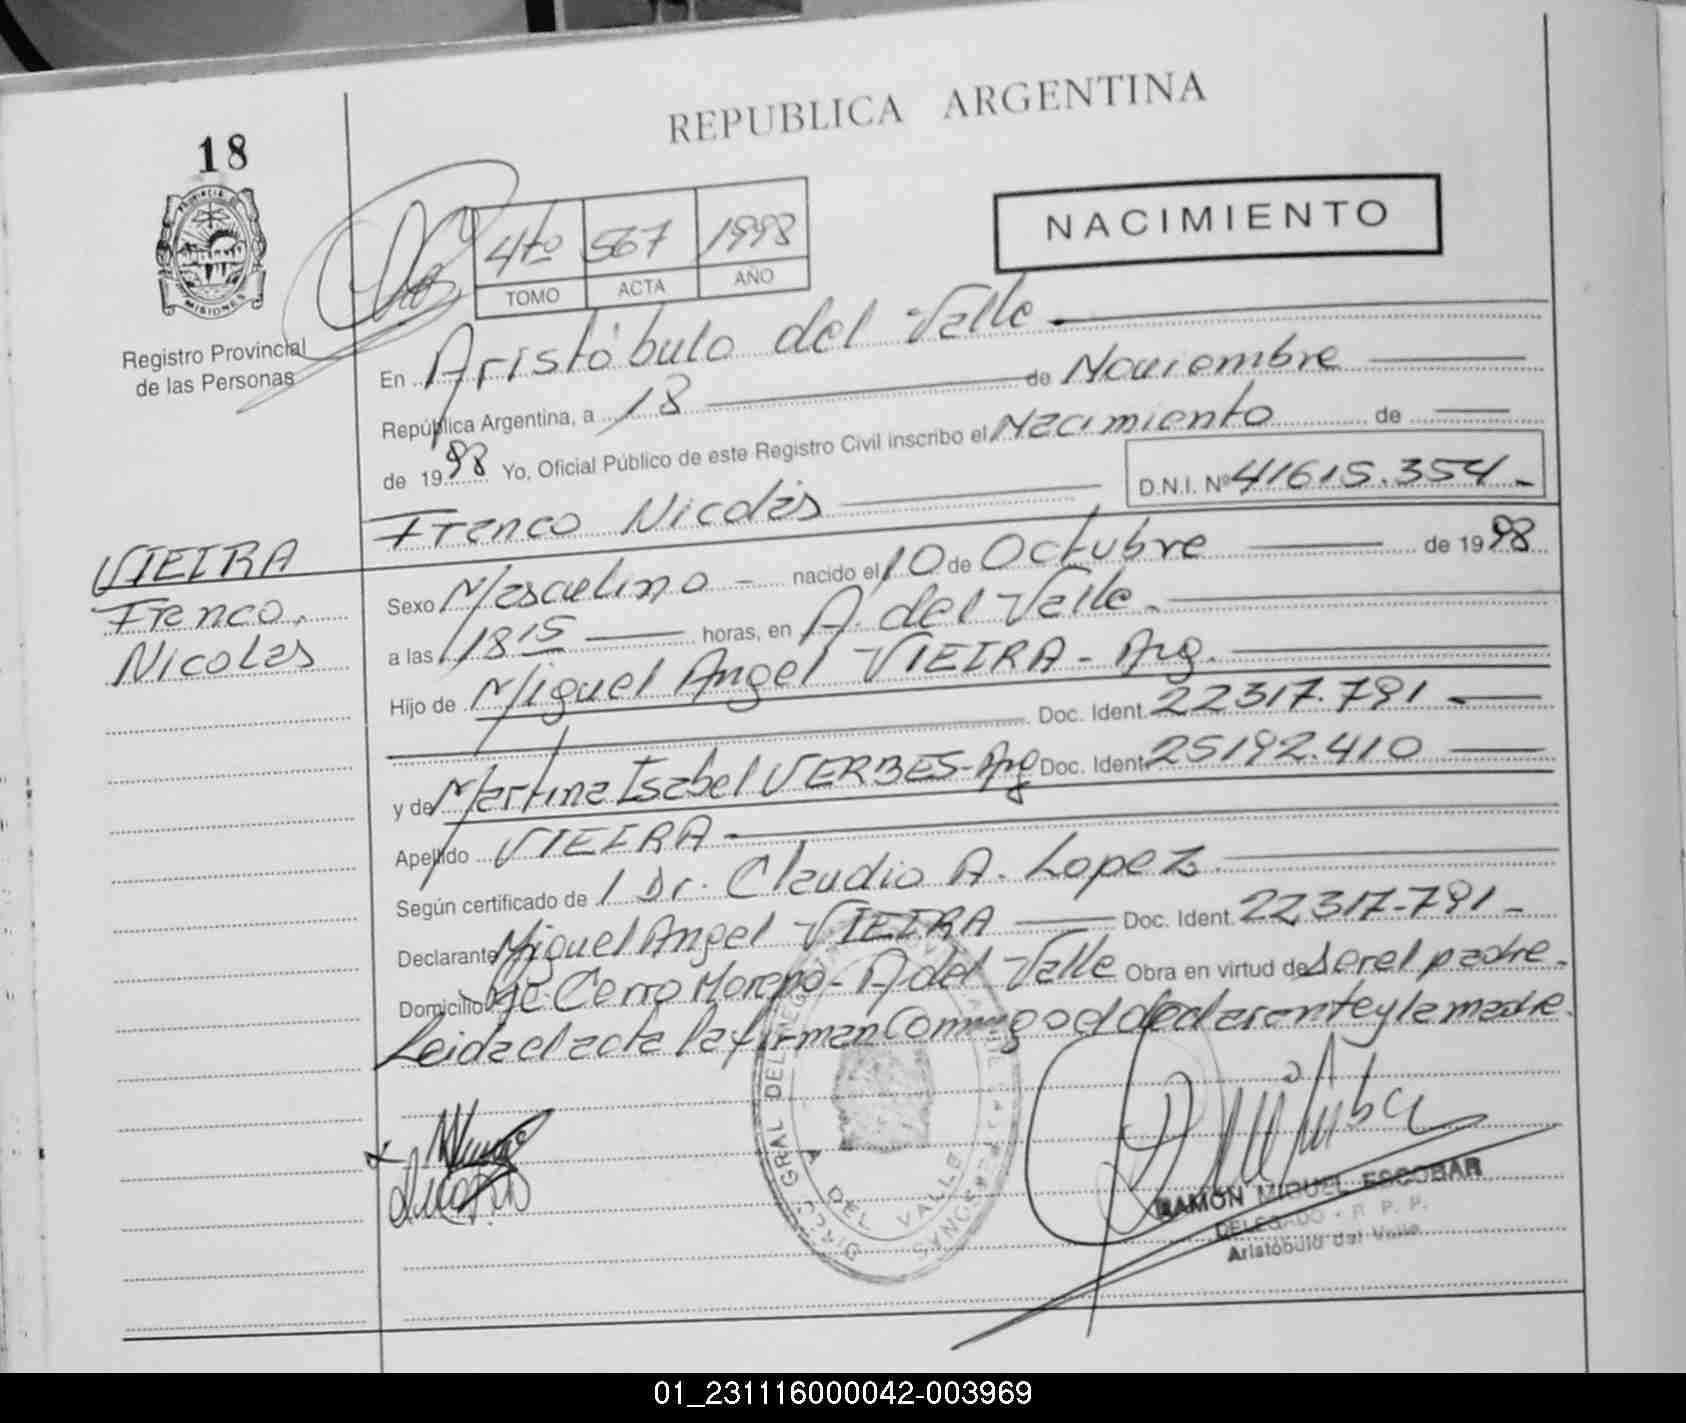 REPUBLICA ARGENTINA
18
PROVINCIA DE
MISIONES
Registro Provincial
de las Personas
4to 567 1998
TOMO ACTA AÑO
NACIMIENTO
En Aristóbulo del Valle
República Argentina, a 18 de Noviembre
de 1998 Yo, Oficial Público de este Registro Civil inscribo el Nacimiento de
Franco Nicolás D.N.I. Nº 41615.354.-
VIEIRA
Franco,
Nicolas
Sexo Masculino - nacido el 10 de Octubre de 1998
a las 18 15 horas, en A. del Valle.
Hijo de Miguel Angel VIEIRA - Arg.
Doc. Ident. 22317.791
y de Martina Isabel VERBES-Arg Doc. Ident. 25192.410
Apellido VIEIRA
Según certificado de 1 Dr. Claudio A. Lopez
Declarante Miguel Angel VIEIRA Doc. Ident. 22317-791-
Domicilio Cerro Moreno - A del Valle Obra en virtud de ser el padre.
Leida el acta la firman Conmigo el declarante y la madre.
DIRECC. GRAL DEL REG. CIVIL DE LAS PERSONAS
A DEL VALLE
RAMON MIGUEL ESCOBAR
DELEGADO - R. P. P.
Aristóbulo del Valle
01_231116000042-003969